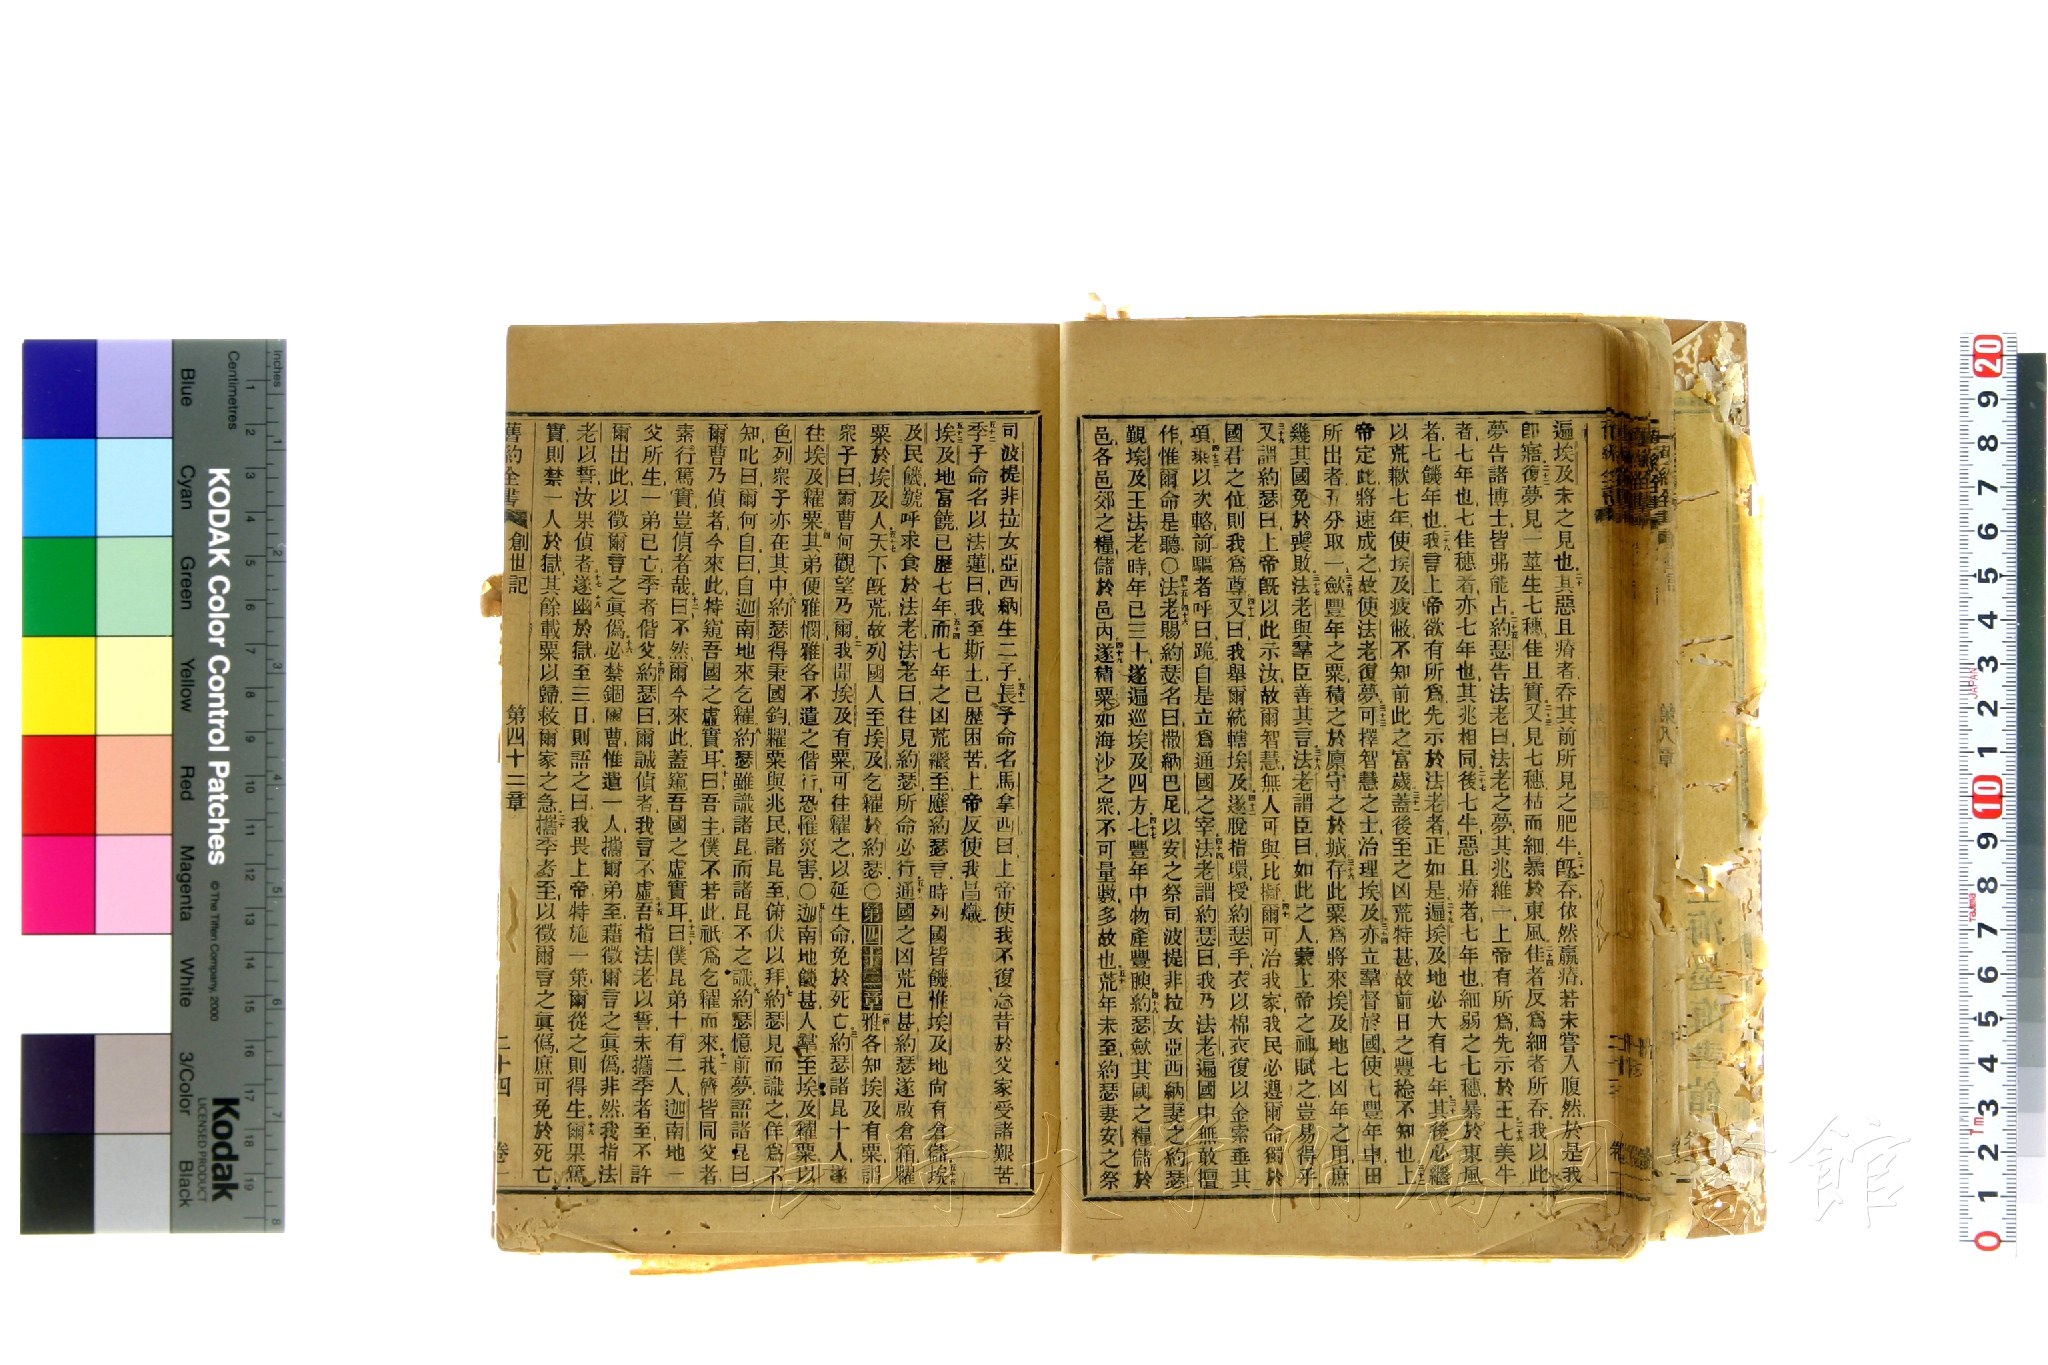 遍埃及未之見也其惡且瘠者吞其前所見之肥牛旣吞依然羸瘠若未嘗入腹然於是我
卽寤復夢見一莖生七穗佳且實又見七穗枯而細暴於東風佳者反爲細者所吞我以此
夢告諸博士皆弗能占約瑟告法老曰法老之夢其兆維一上帝有所爲先示於王七美牛
者七年也七佳穗者亦七年也其兆相同後七牛惡且瘠者七年也細弱之七穗暴於東風
者七饑年也我言上帝欲有所爲先示於法老者正如是遍埃及地必大有七年其後必繼
以荒歉七年使埃及疲敝不知前此之富歲蓋後至之凶荒特甚故前日之豐稔不知也上
帝定此將速成之故使法老復夢可擇智慧之士治理埃及亦立羣督於國使七豐年中田
所出者五分取一斂豐年之粟積之於廩守之於城存此粟爲將來埃及地七凶年之用庶
幾其國免於喪敗法老與羣臣善其言法老謂臣曰如此之人蒙上帝之神賦之豈易得乎
又謂約瑟曰上帝旣以此示汝故爾智慧無人可與比擬爾可治我家我民必遵爾命獨於
國君之位則我爲尊又曰我舉爾統轄埃及遂脫指環授約瑟手衣以棉衣復以金索垂其
項乘以次輅前驅者呼曰跪自是立爲通國之宰法老謂約瑟曰我乃法老遍國中無敢擅
作惟爾命是聽〇法老賜約瑟名曰撒納巴尼以安之祭司波提非拉女亞西納妻之約瑟
覲埃及王法老時年已三十遂遍巡埃及四方七豐年中物產豐腴約瑟斂其國之糧儲於
邑各邑郊之糧儲於邑內遂積粟如海沙之衆不可量數多故也荒年未至約瑟妻安之祭
司波提非拉女亞西納生二子長子命名馬拿西曰上帝使我不復念昔於父家受諸艱苦
季子命名以法蓮曰我至斯土已歷困苦上帝反使我昌熾
埃及地富饒已歷七年而七年之凶荒繼至應約瑟言時列國皆饑惟埃及地尙有倉儲埃
及民饑號呼求食於法老法老曰往見約瑟所命必行通國之凶荒已甚約瑟遂啟倉箱糶
粟於埃及人天下旣荒故列國人至埃及乞糴於約瑟〇第四十二章雅各知埃及有粟謂
衆子曰爾曹何觀望乃爾我聞埃及有粟可往糴之以延生命免於死亡約瑟諸昆十人遂
往埃及糴粟其弟便雅憫雅各不遣之偕行恐罹災害〇迦南地饑甚人羣至埃及糴粟以
色列衆子亦在其中約瑟得秉國鈞糶粟與兆民諸昆至俯伏以拜約瑟見而識之佯爲不
知叱曰爾何自曰自迦南地來乞糴約瑟雖識諸昆而諸昆不之識約瑟憶前夢語諸昆曰
爾曹乃偵者今來此特窺吾國之虛實耳曰吾主僕不若此祇爲乞糴而來我儕皆同父者
素行篤實豈偵者哉曰不然爾今來此蓋窺吾國之虛實耳曰僕昆弟十有二人迦南地一
父所生一弟已亡季者偕父約瑟曰爾誠偵者我言不虛吾指法老以誓未攜季者至不許
爾出此以徵爾言之眞僞必禁錮爾曹惟遣一人攜爾弟至藉徵爾之眞僞非然我指法
老以誓汝果偵者遂幽於獄至三日則語之曰我畏上帝特施一策爾從之則得生爾果篤
實則禁一人於獄其餘載粟以歸救爾家之急攜季者至以徵爾言之眞僞庶可免於死亡
舊約全書 創世記 第四十二章 二十四 卷一
KODAK Color Control Patches
© The Tiffen Company, 2000
Kodak
LICENSED PRODUCT
Inches
Centimetres
Blue Cyan Green Yellow Red Magenta White 3/Color Black
長崎大学附属図書館
JAPAN